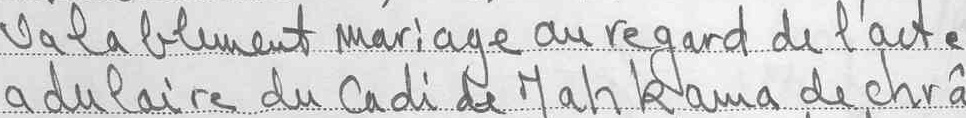 Valablement mariage au regard de l'acte
adulaire du Cadi de Mahkama de chrâ